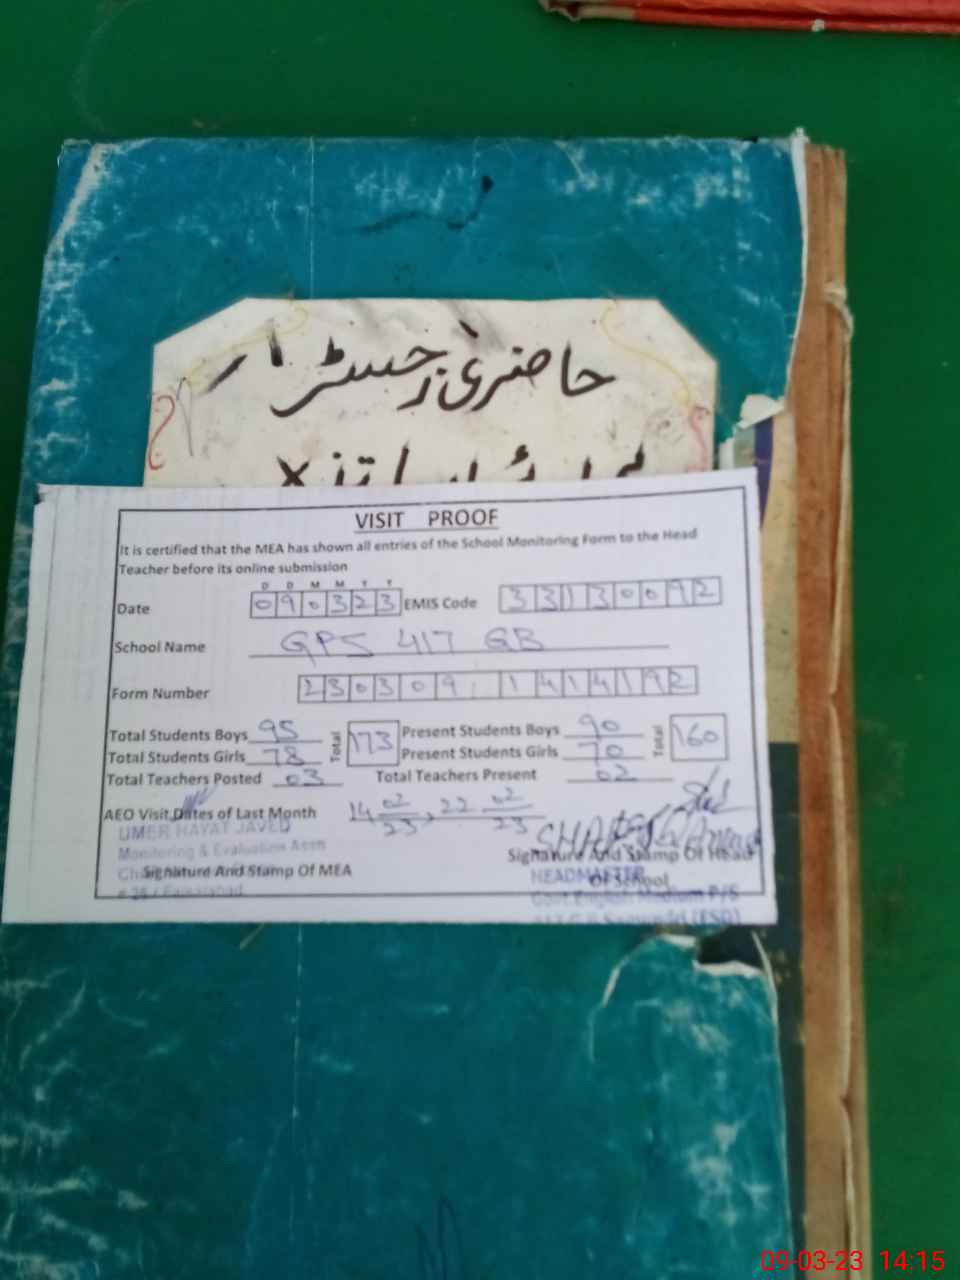 حاضری رجسٹر
VISIT PROOF
It is certified that the MEA has shown all entries of the School Monitoring Form to the Head
Teacher before its online submission
D D M M Y Y
Date 090323 EMIS Code 33130092
School Name GPS 417 GB
Form Number 230309 1414192
Total Students Boys 95 Total 173 Present Students Boys 90 Total 160
Total Students Girls 78 Present Students Girls 70
Total Teachers Posted 03 Total Teachers Present 02
AEO Visit Dates of Last Month 14 02/23, 22 02/23
UMER HAYAT JAVED
Monitoring & Evaluation Asstt
Signature And Stamp Of MEA
Signature And Stamp Of Head
Of School
HEADMASTER
Govt. English Medium P/S
09-03-23 14:15